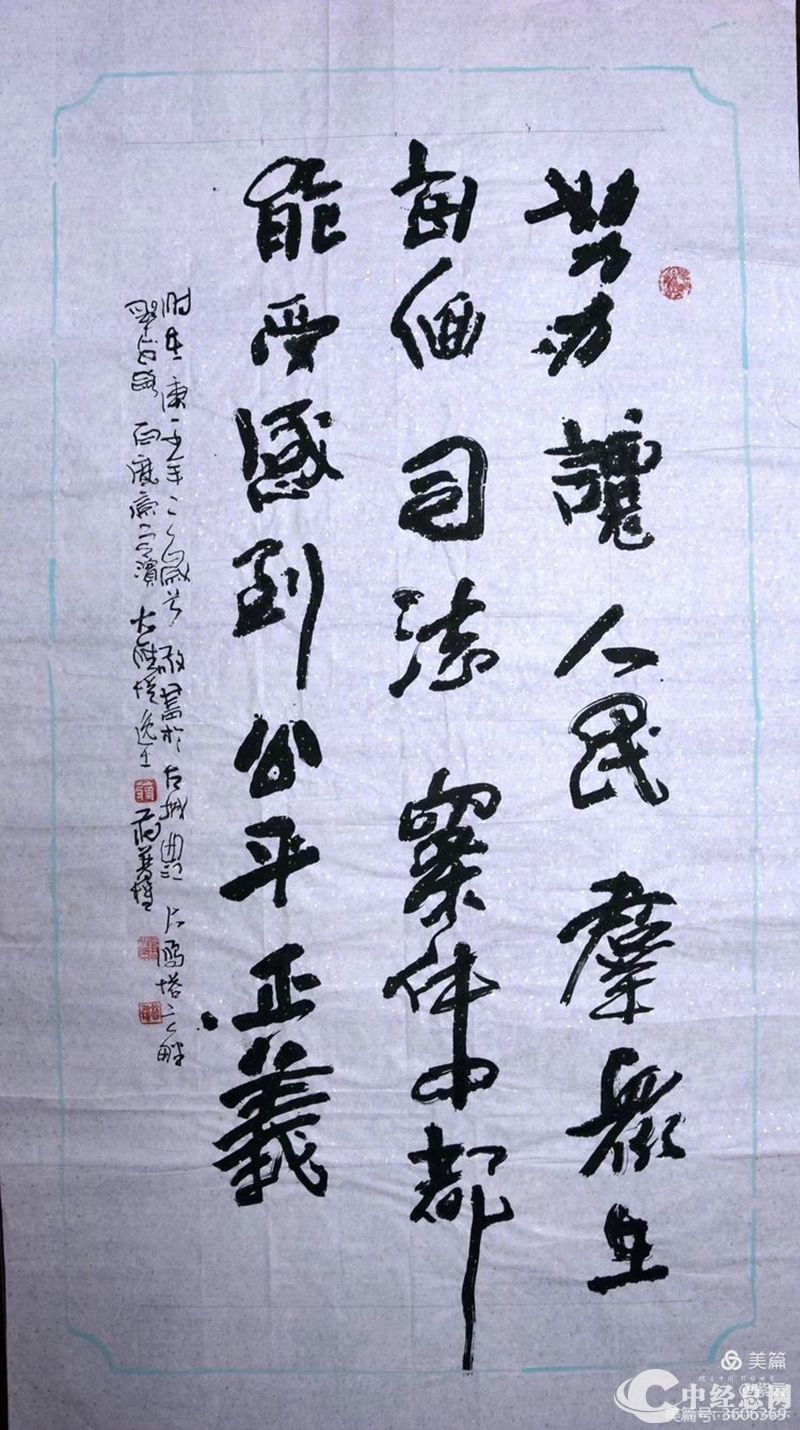 努力讓人民羣眾在
每個司法案件中都
能受感到公平正義
时在庚子年之歲首敬書於古城曲江大鴈塔之畔
美篇
中经总网
美篇号:3606369